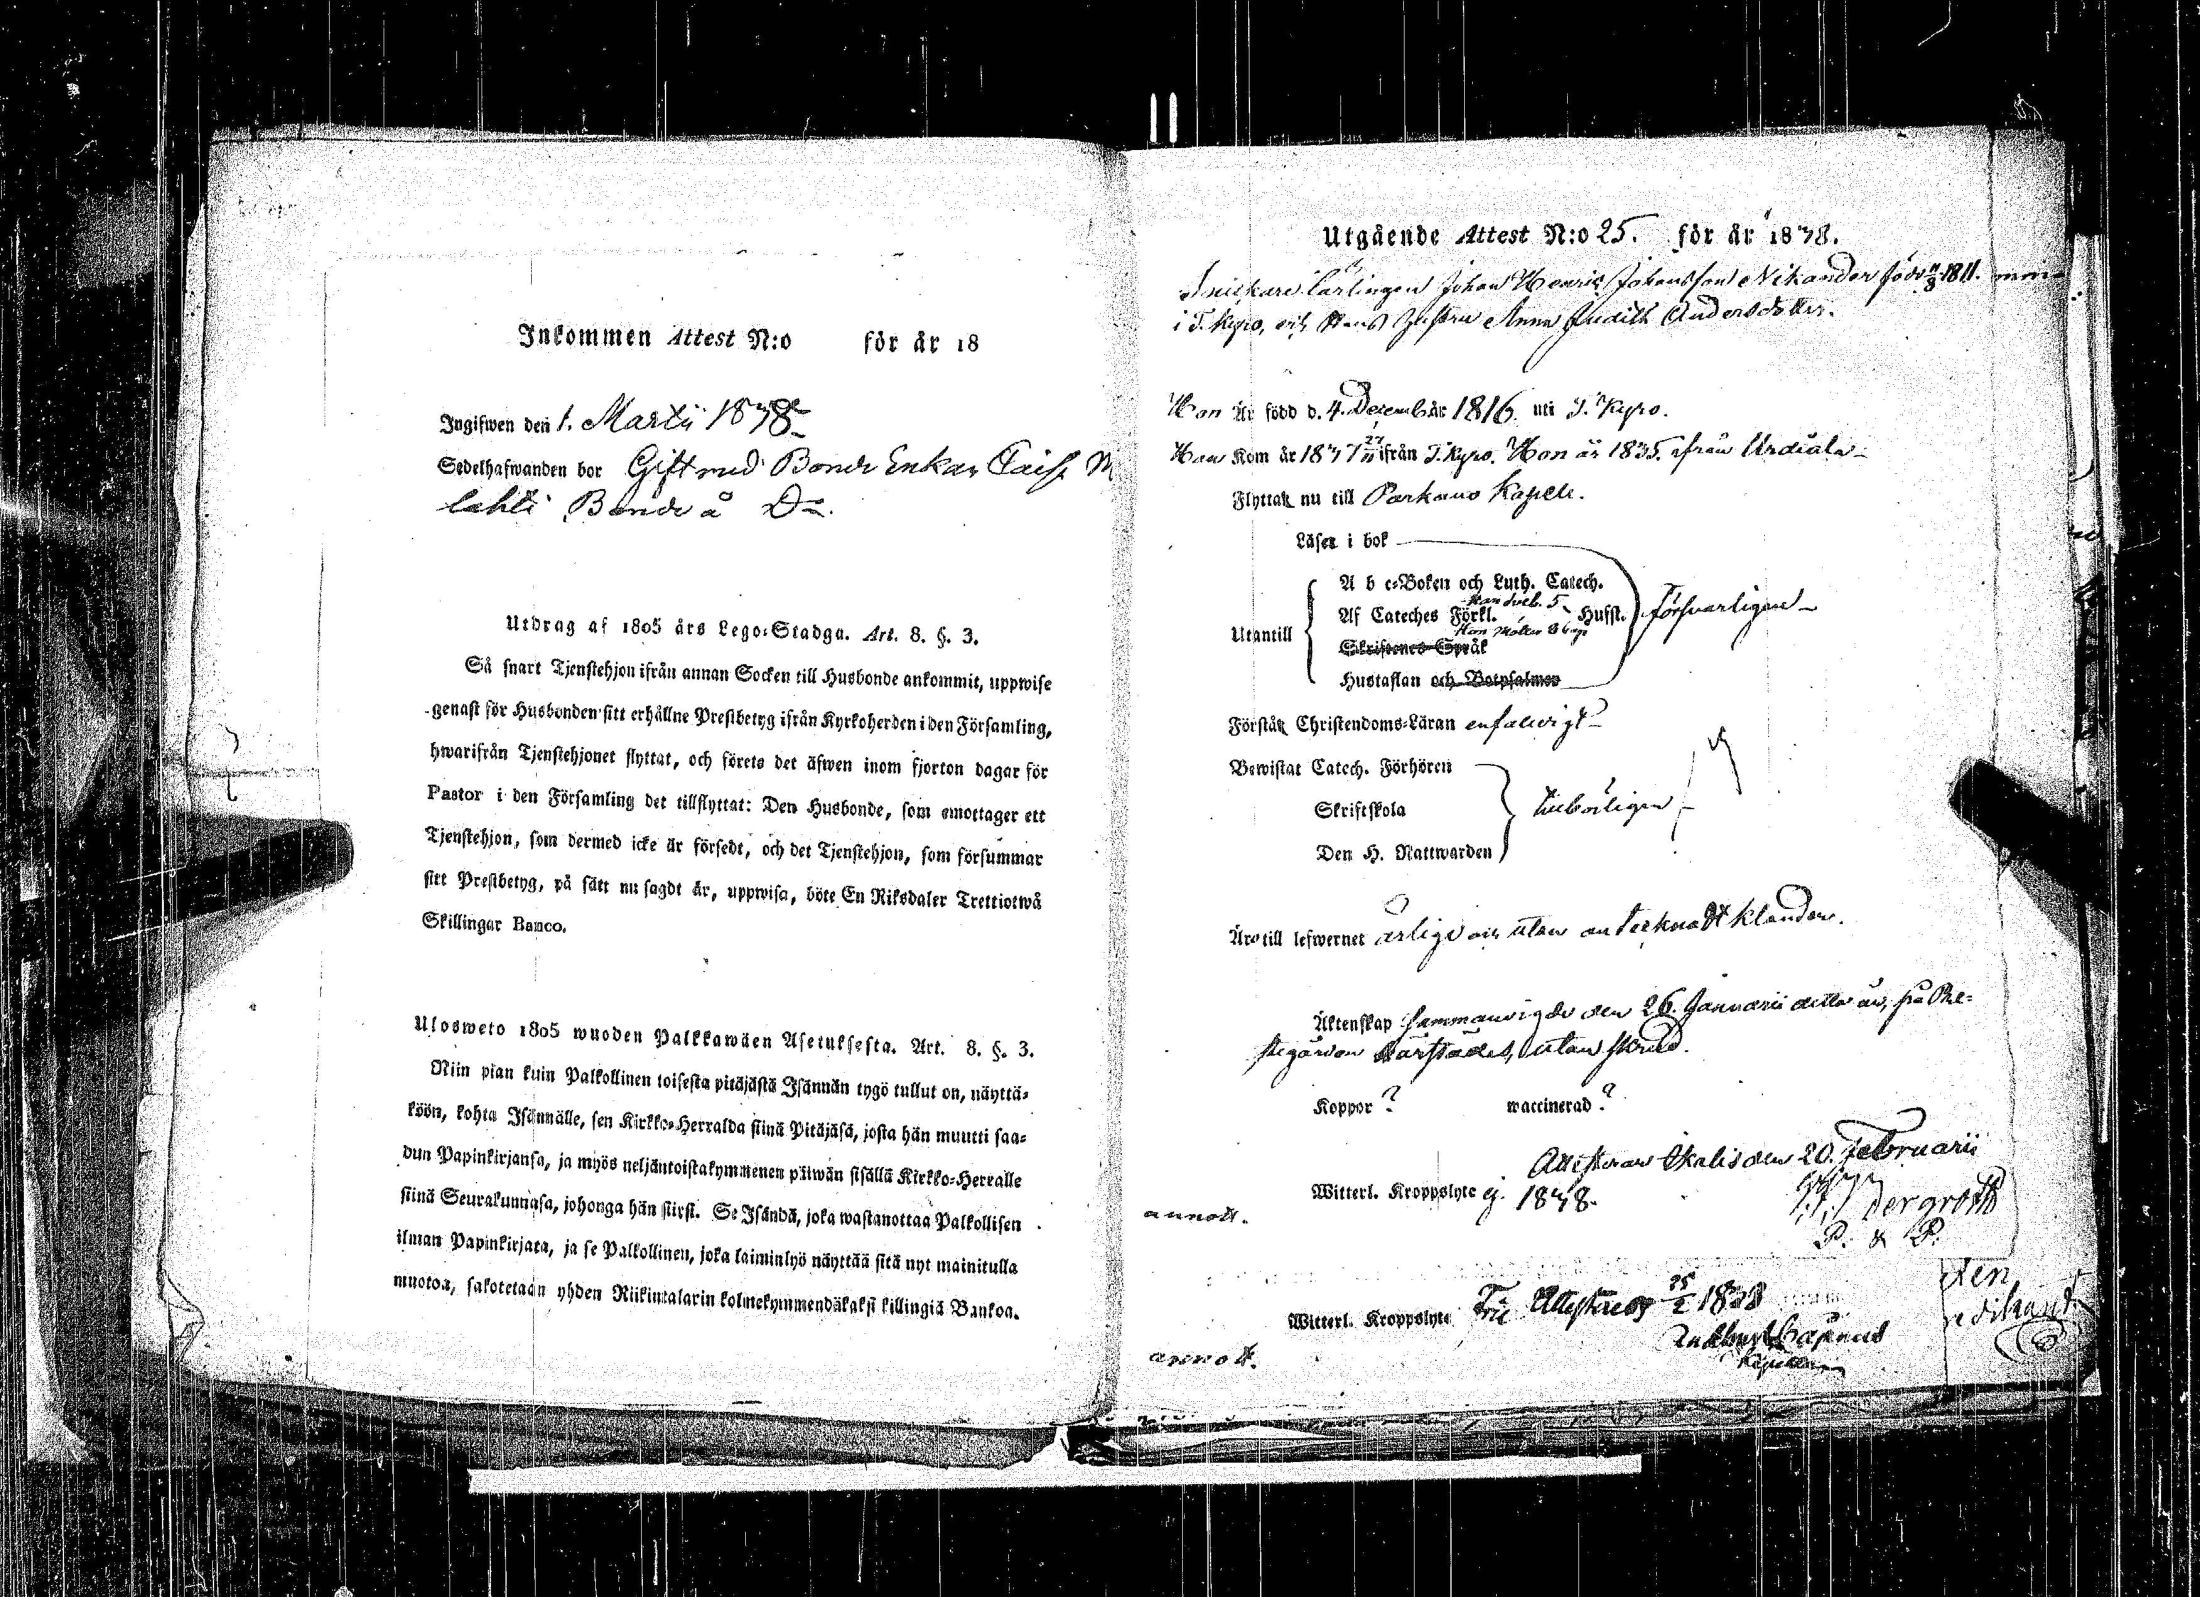 Inkommen Attest N:o för år 18
Ingifwen den 1. Martii 1838
Sedelhafwanden bor Gift med Bonde Enkan Caisa M
lahti Bonde å D:o
Utdrag af 1805 års Lego-Stadga. Art. 8. §. 3.
Så snart Tjenstehjon ifrån annan Socken till Husbonde ankommit, uppwise
genast för Husbonden sitt erhållne Prestbetyg ifrån Kyrkoherden i den Församling,
hwarifrån Tjenstehjonet flyttat, och förete det äfwen inom fjorton dagar för
Pastor i den Församling det tillflyttat: Den Husbonde, som emottager ett
Tjenstehjon, som dermed icke är försedt, och det Tjenstehjon, som försummar
sitt Prestbetyg, på sätt nu sagdt är, uppwisa, böte En Riksdaler Trettiotwå
Skillingar Banco.
Ulosweto 1805 wuoden Palkkawäen Asetuksesta. Art. 8. §. 3.
Niin pian kuin Palkollinen toisesta pitäjästä Isännän tygö tullut on, näyttä-
köön, kohta Isännälle, sen Kirkko-Herralda siinä Pitäjäsä, josta hän muutti saa-
dun Papinkirjansa, ja myös neljäntoistakymmenen päiwän sisällä Kirkko-Herralle
siinä Seurakunnasa, johonga hän siirsi. Se Isändä, joka wastanottaa Palkollisen
ilman Papinkirjata, ja se Palkollinen, joka laiminlyö näyttää sitä nyt mainitulla
muotoa, sakotetaan yhden Riikintalarin kolmekymmendäkaksi killingiä Bankoa.
Utgående Attest N:o 25. för år 1838.
Snickare Lärlingen Johan Henric Johansson Nikander född 1811.
i T. Kyro, och Hans Hustru Anna Judith Andersdotter.
Hon Är född d. 4. December 1816 uti T. Kyro.
Han Kom år 1837 27/11 ifrån T. Kyro. Hon år 1835 ifrån Urdiala
Flyttar nu till Parkano Kapell.
Läser i bok
A b c-Boken och Luth. Catech.
Af Cateches Förkl. Husst. försvarligen
Utantill
Skriftenes Språk
Hustaflan och Botpsalmer
Förstår Christendoms-Läran enfaldigt
Bewistat Catech. Förhören
Skriftskola tillbörligen
Den H. Nattwarden
Äro till lefwernet ärlige och utan antecknadt klander.
Äktenskap sammanvigde den 26. Januarii detta år, på Pre-
stegården härstädes, utan skrud.
Koppor ? waccinerad ?
Attesterar Ikalis den 20. Februarii
Witterl. Kroppslyte ej. 1838.
annott. dergroth
P. & P.
Witterl. Kroppslyte 25/2 1838
annott.